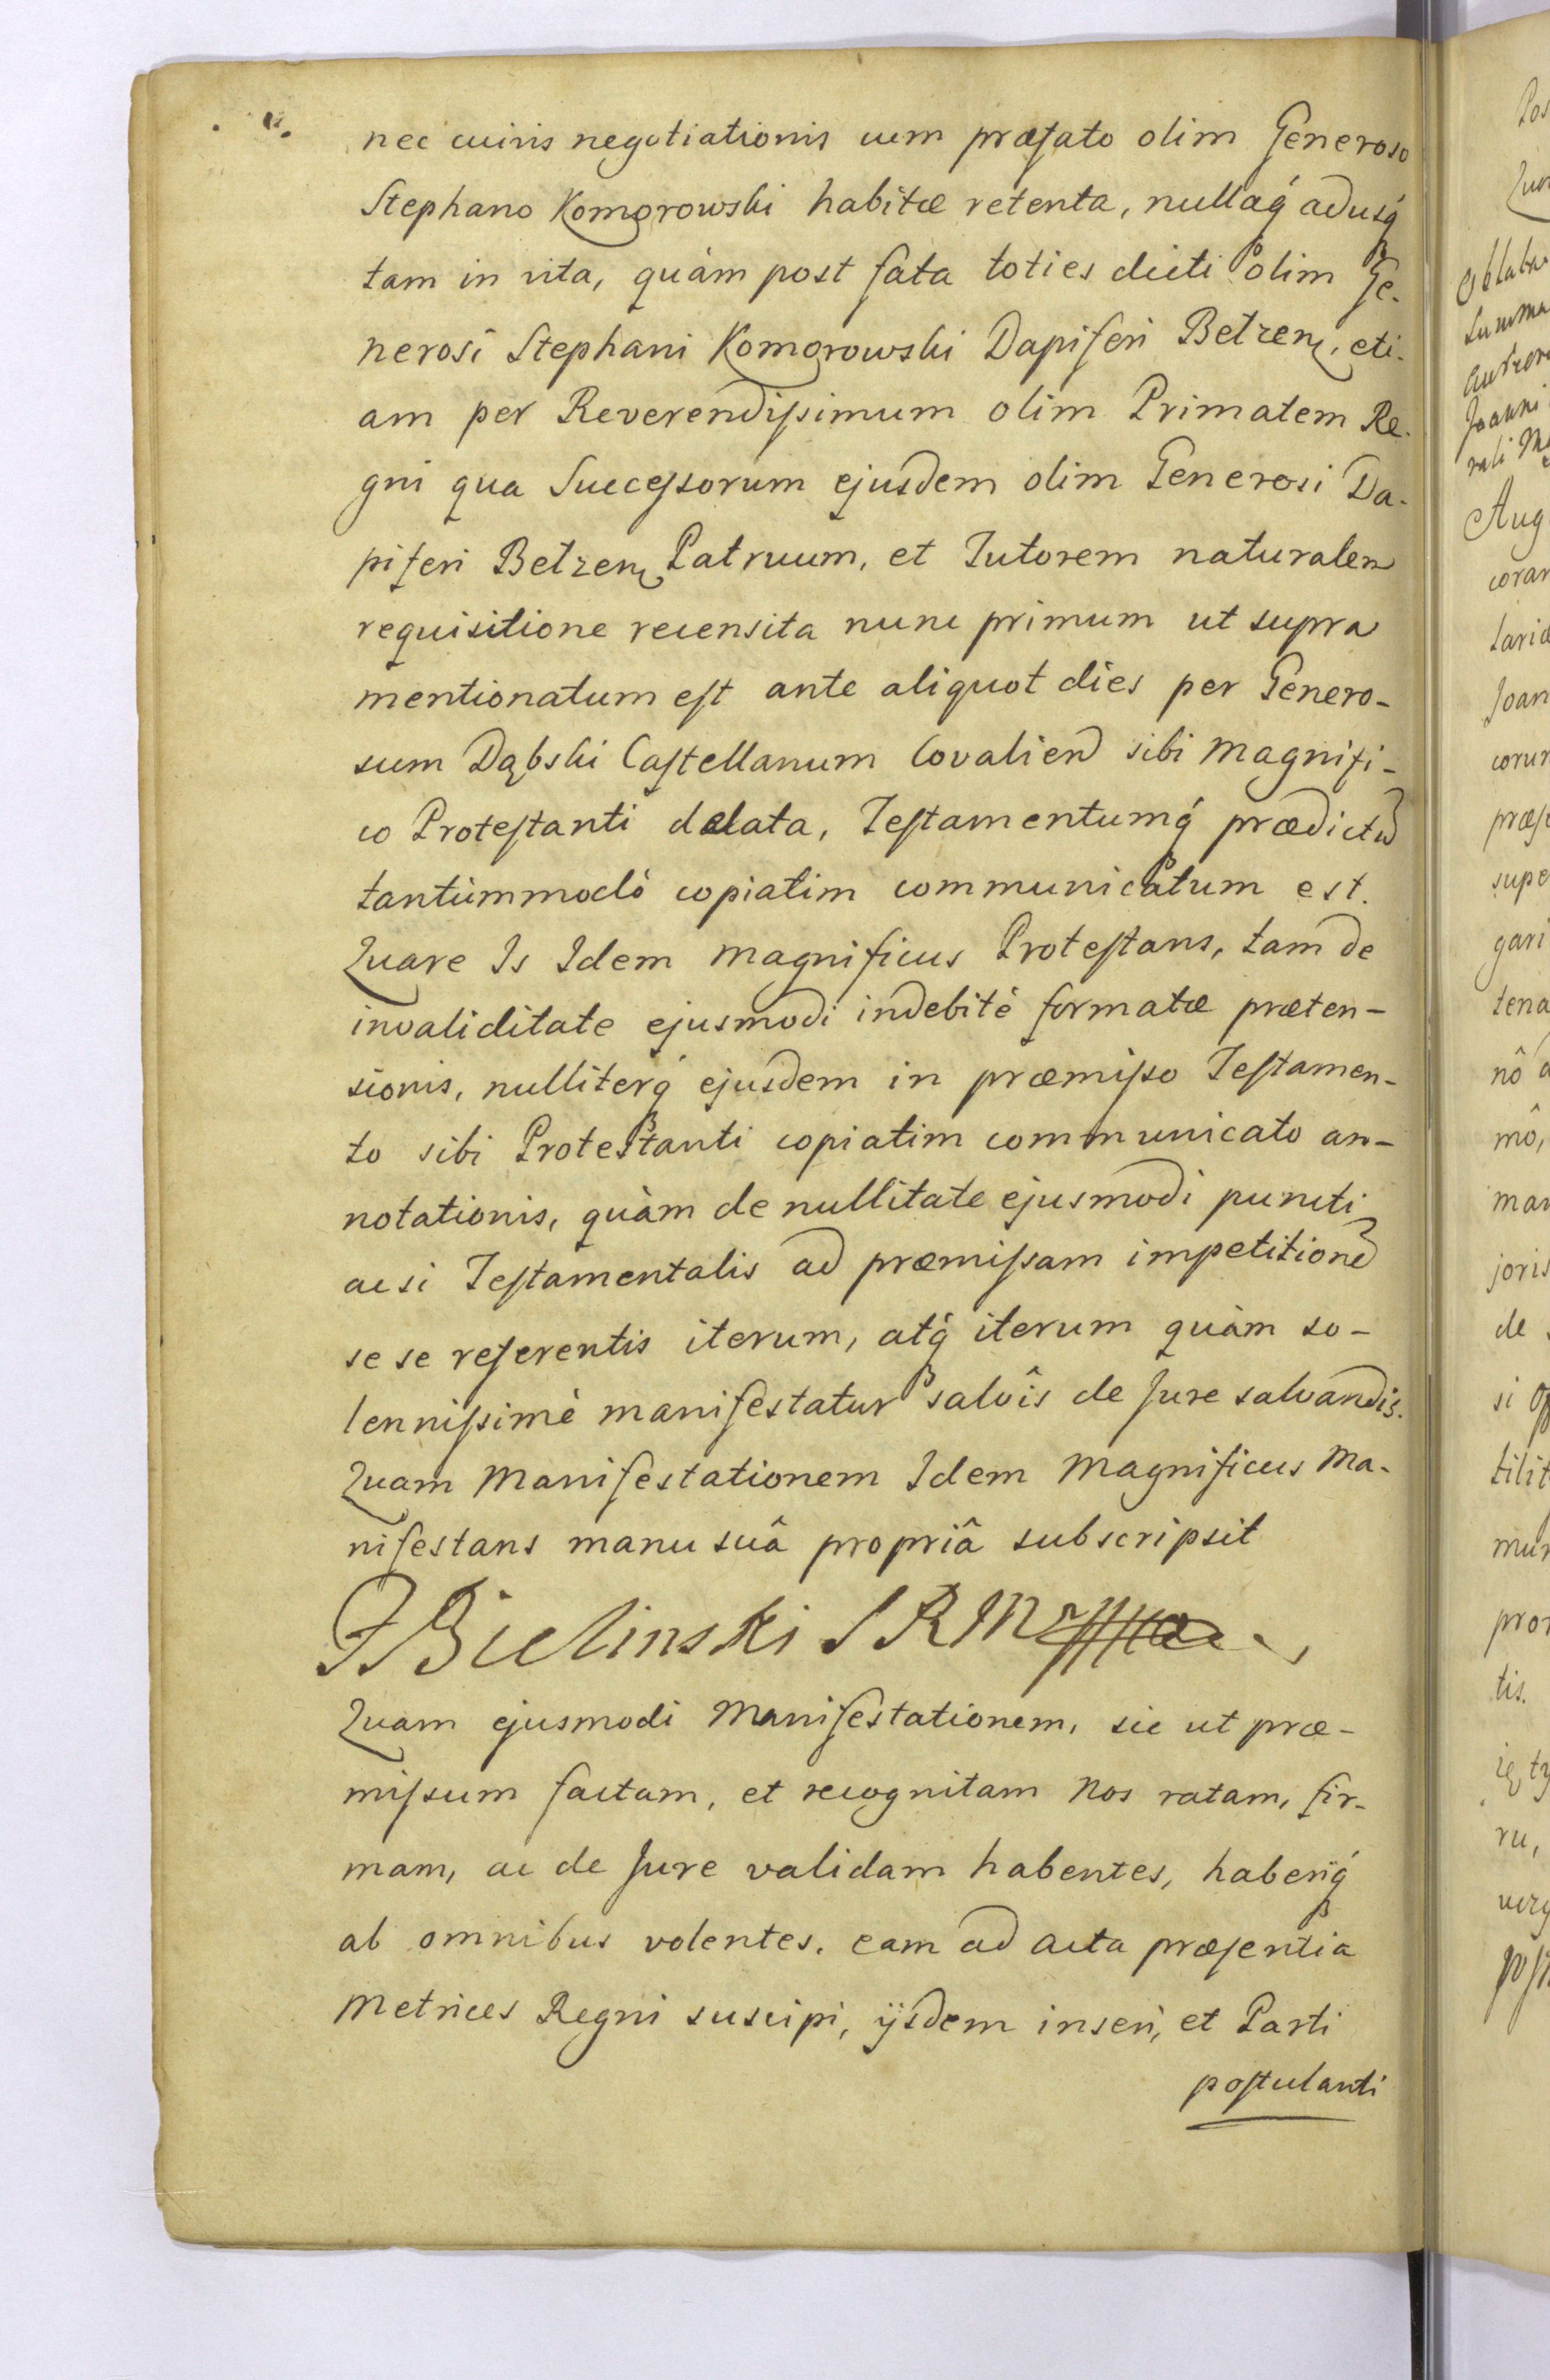 nec cuivis negotiationis cum præfato olim Generoso
Stephano Komorowski habitæ retenta, nullaq́ adusq́
tam in vita, quàm post fata toties dicti olim Ge-
nerosi Stephani Komorowski Dapiferi Betzen, eti-
am per Reverendissimum olim Primatem Re-
gni qua Successorum ejusdem olim Generosi Da-
piferi Betzen Patruum, et Tutorem naturalem
requisitione recensita nunc primum ut supra
mentionatum est ante aliquot dies per Genero-
sum Dąbski Castellanum Covalien sibi Magnifi-
co Protestanti delata, Testamentumq́ prædictũ
tantùmmodò copiatim communicatum est.
Quare Is Idem Magnificus Protestans, tam de
invaliditate ejusmodi indebitè formatæ præten-
sionis, nulliterq́ ejusdem in præmisso Testamen-
to sibi Protestanti copiatim communicato an-
notationis, quàm de nullitate ejusmodi puncti
acsi Testamentalis ad præmissam impetitionẽ
sese referentis iterum, atq́ iterum quàm so-
lennissimè manifestatur salvîs de Jure salvandis.
Quam Manifestationem Idem Magnificus Ma-
nifestans manu suâ propriâ subscripsit
F Bielinski S R M
Quam ejusmodi Manifestationem, sic ut præ-
missum factam, et recognitam Nos ratam, fir-
mam, ac de Jure validam habentes, haberiq́
ab omnibus volentes, eam ad Acta præsentia
Metrices Regni suscipi, ijsdem inseri, et Parti
postulanti